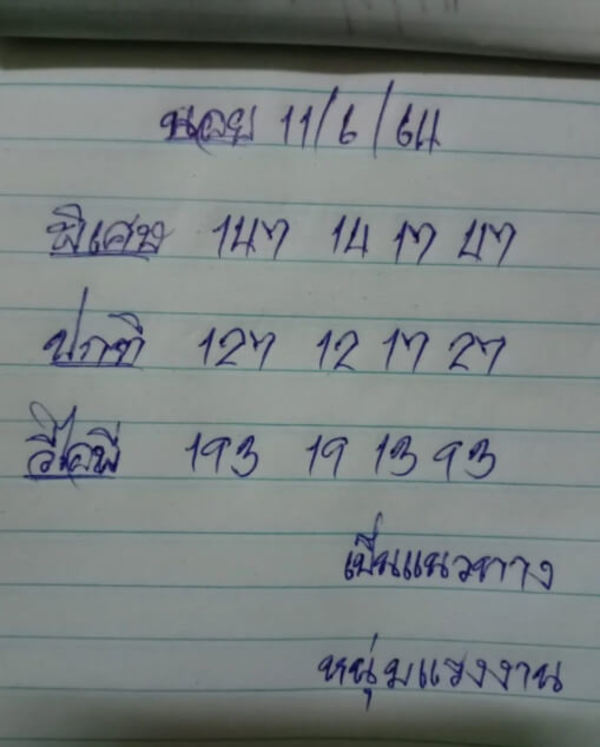 ฮานอย 11/6/64
พิเศษ 147 14 17 47
ปกติ 127 12 17 27
วีไอพี 193 19 13 93
เป็นแนวทาง
หนุ่มแรงงาน